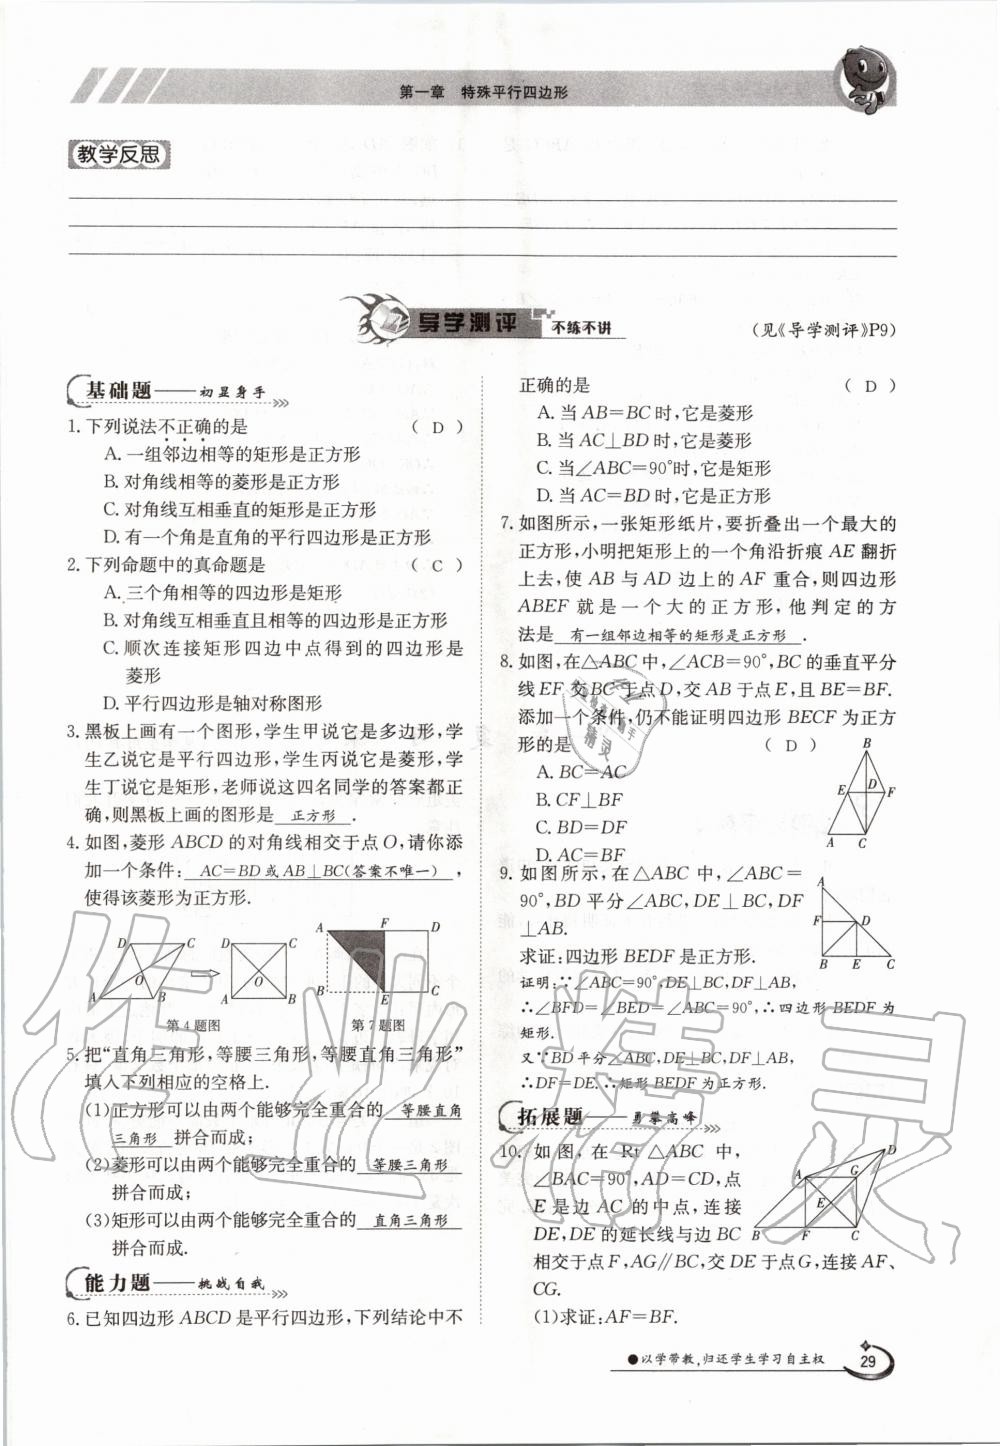 第一章　特殊平行四边形
教学反思
导学测评 不练不讲
(见《导学测评》P9)
基础题——初显身手
1. 下列说法不正确的是 （ D ）
A. 一组邻边相等的矩形是正方形
B. 对角线相等的菱形是正方形
C. 对角线互相垂直的矩形是正方形
D. 有一个角是直角的平行四边形是正方形
2. 下列命题中的真命题是 （ C ）
A. 三个角相等的四边形是矩形
B. 对角线互相垂直且相等的四边形是正方形
C. 顺次连接矩形四边中点得到的四边形是
菱形
D. 平行四边形是轴对称图形
3. 黑板上画有一个图形,学生甲说它是多边形,学
生乙说它是平行四边形,学生丙说它是菱形,学
生丁说它是矩形,老师说这四名同学的答案都正
确,则黑板上画的图形是 正方形 .
4. 如图,菱形 ABCD 的对角线相交于点 O,请你添
加一个条件: AC=BD 或 AB⊥BC(答案不唯一) ,
使得该菱形为正方形.
D C D C A F D
O O
A B A B B E C
第 4 题图 第 7 题图
5. 把“直角三角形,等腰三角形,等腰直角三角形”
填入下列相应的空格上.
(1)正方形可以由两个能够完全重合的 等腰直角
三角形 拼合而成;
(2)菱形可以由两个能够完全重合的 等腰三角形
拼合而成;
(3)矩形可以由两个能够完全重合的 直角三角形
拼合而成.
能力题——挑战自我
6. 已知四边形 ABCD 是平行四边形,下列结论中不
正确的是 （ D ）
A. 当 AB=BC 时,它是菱形
B. 当 AC⊥BD 时,它是菱形
C. 当∠ABC=90°时,它是矩形
D. 当 AC=BD 时,它是正方形
7. 如图所示,一张矩形纸片,要折叠出一个最大的
正方形,小明把矩形上的一个角沿折痕 AE 翻折
上去,使 AB 与 AD 边上的 AF 重合,则四边形
ABEF 就是一个大的正方形,他判定的方
法是 有一组邻边相等的矩形是正方形 .
8. 如图,在△ABC 中,∠ACB=90°,BC 的垂直平分
线 EF 交 BC 于点 D,交 AB 于点 E,且 BE=BF.
添加一个条件,仍不能证明四边形 BECF 为正方
形的是 （ D ）
A. BC=AC
B. CF⊥BF
C. BD=DF
D. AC=BF
B
E D F
A C
9. 如图所示,在△ABC 中,∠ABC=
90°,BD 平分∠ABC,DE⊥BC,DF
⊥AB.
求证:四边形 BEDF 是正方形.
A
F D
B E C
证明:∵∠ABC=90°,DE⊥BC,DF⊥AB,
∴∠BFD=∠BED=∠ABC=90°,∴四边形 BEDF 为
矩形.
又∵BD 平分∠ABC,DE⊥BC,DF⊥AB,
∴DF=DE.∴矩形 BEDF 为正方形.
拓展题——勇攀高峰
10. 如图,在 Rt △ABC 中,
∠BAC=90°,AD=CD,点
E 是边 AC 的中点,连接
DE,DE 的延长线与边 BC
相交于点 F,AG∥BC,交 DE 于点 G,连接 AF,
CG.
(1)求证:AF=BF.
D
A G
E
B F C
●以学带教,归还学生学习自主权
29
作业精灵